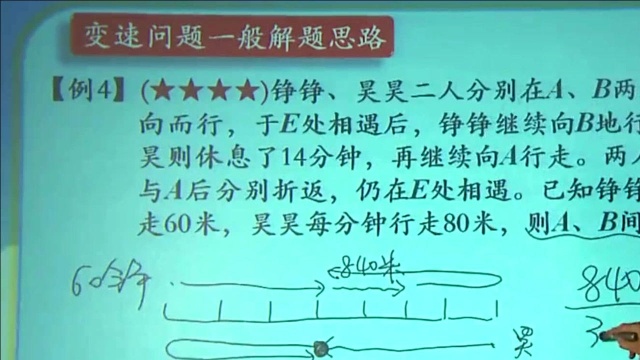 变速问题一般解题思路
【例4】(★★★★)铮铮、昊昊二人分别在A、B两
向而行，于E处相遇后，铮铮继续向B地行
昊则休息了14分钟，再继续向A行走。两人
与A后分别折返，仍在E处相遇。已知铮铮
走60米，昊昊每分钟行走80米，则A、B间
840米
60
840
3
昊